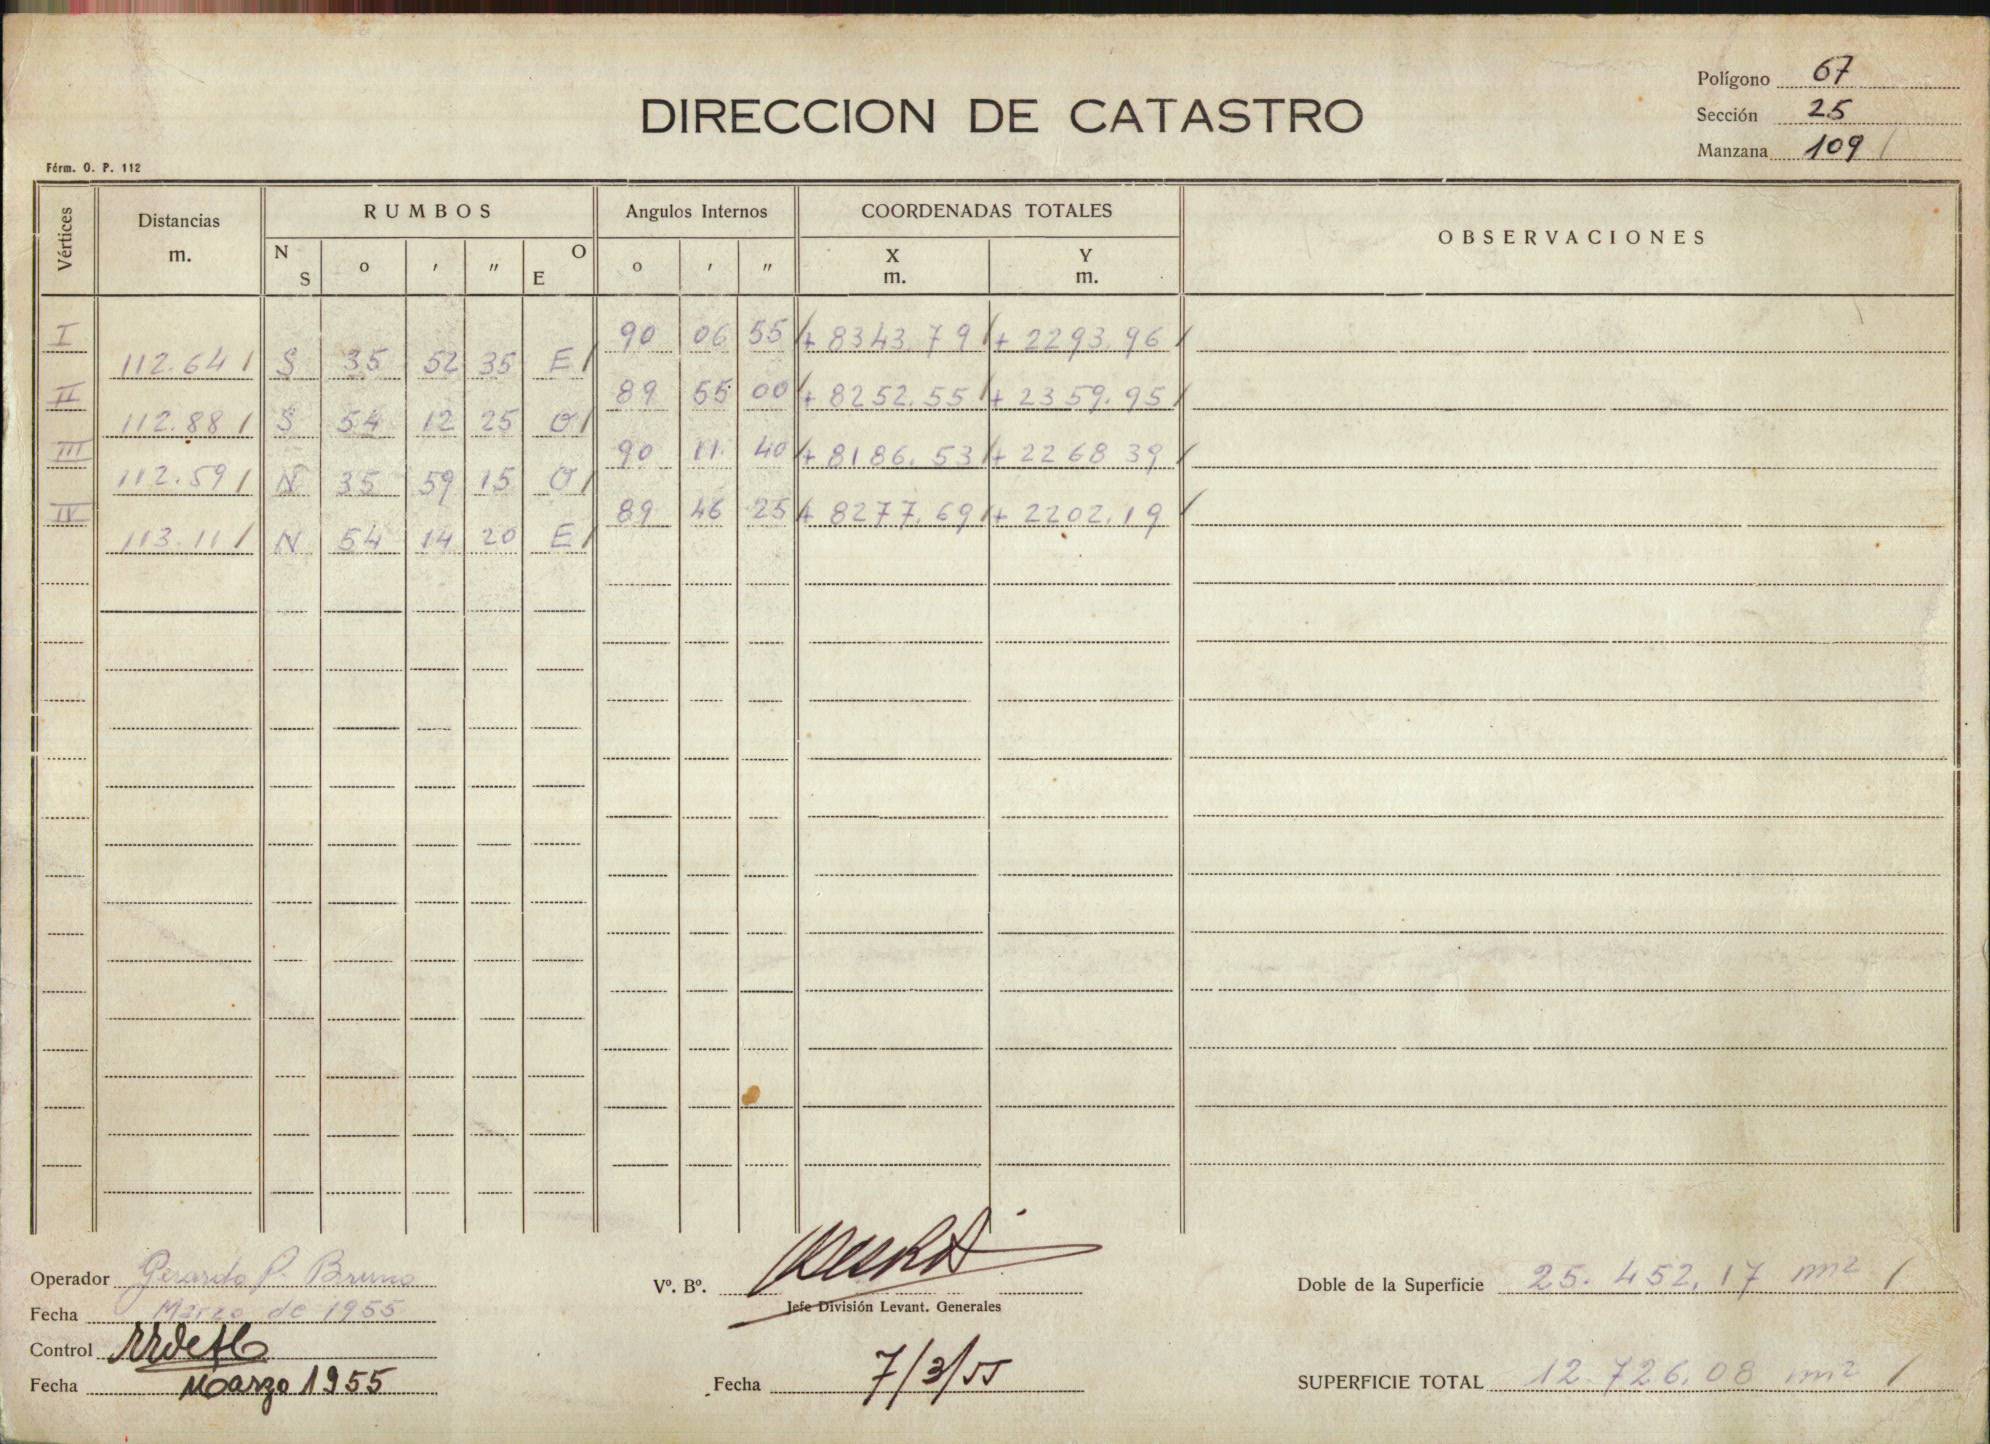 Polígono 67
DIRECCION DE CATASTRO
Sección 25
Manzana 109 /
Fórm. O. P. 112
Vértices Distancias m. RUMBOS Angulos Internos COORDENADAS TOTALES OBSERVACIONES
N S o ′ ″ O E o ′ ″ X m. Y m.
I 90 06 55 / + 8343.79 / + 2293.96 /
112.64 / S 35 52 35 E /
II 89 55 00 / + 8252.55 / + 2359.95 /
112.88 / S 54 12 25 O /
III 90 11 40 / + 8186.53 / + 2268 39 /
112.59 / N 35 59 15 O /
IV 89 46 25 / + 8277.69 / + 2202.19 /
113.11 / N 54 14 20 E /
Operador Gerardo P. Bruno
Vº. Bº.
Doble de la Superficie 25.452,17 m2 /
Jefe División Levant. Generales
Fecha Marzo de 1955
Control
Fecha Marzo 1955
Fecha 7/3/55
SUPERFICIE TOTAL 12.726,08 m2 /